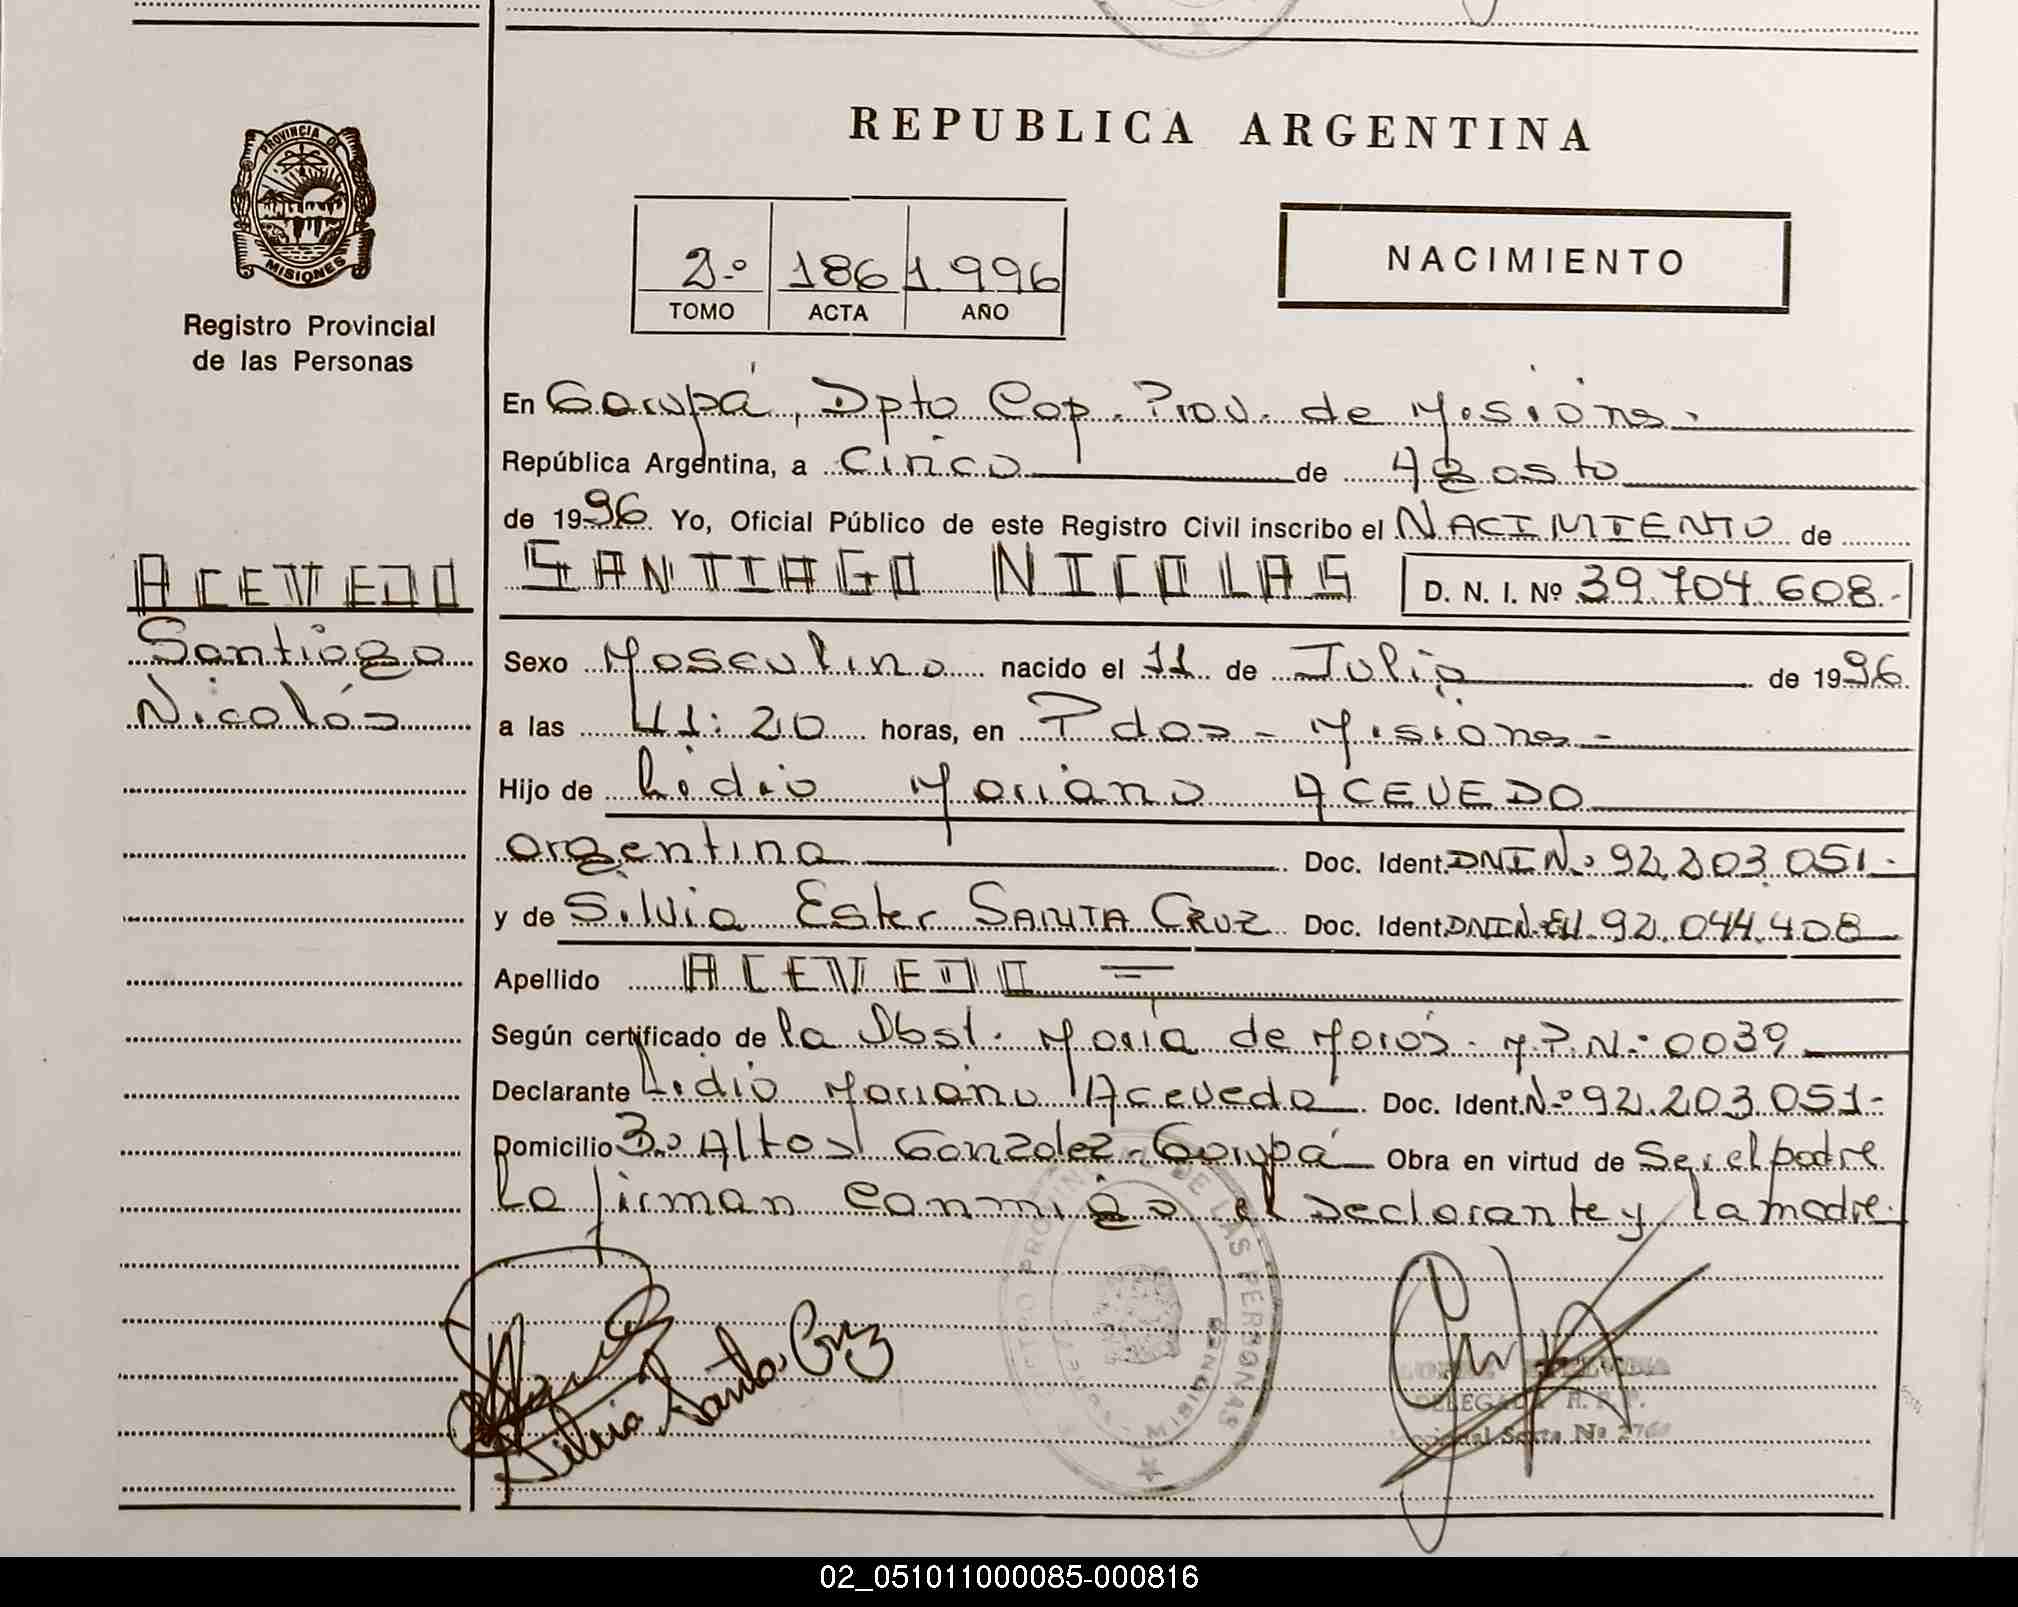 REPUBLICA ARGENTINA
PROVINCIA DE
MISIONES
Registro Provincial
de las Personas
2º 186 1.996
TOMO ACTA AÑO
NACIMIENTO
En Garupá, Dpto Cap. Prov. de Misiones.
República Argentina, a Cinco de Agosto
de 1996 Yo, Oficial Público de este Registro Civil inscribo el NACIMIENTO de
ACEVEDO
Santiago
Nicolás
SANTIAGO NICOLAS D. N. I. Nº 39.704.608.-
Sexo Masculino nacido el 11 de Julio de 1996
a las 11:20 horas, en Pdas - Misiones -
Hijo de Lidio Mariano ACEVEDO
argentina Doc. Ident. DNI Nº 92.203.051.-
y de Silvia Ester SANTA CRUZ Doc. Ident. 92.044.408
Apellido ACEVEDO =
Según certificado de la Obst. María de Morós - M.P.Nº 0039
Declarante Lidio Mariano Acevedo Doc. Ident. Nº 92.203.051-
Domicilio Bº Altos González - Garupá Obra en virtud de Ser el padre
La firman conmigo el declarante y la madre.
Silvia Santa Cruz
DE LAS PERSONAS
MISIONES
DELEGADA R.P.P.
02_051011000085-000816